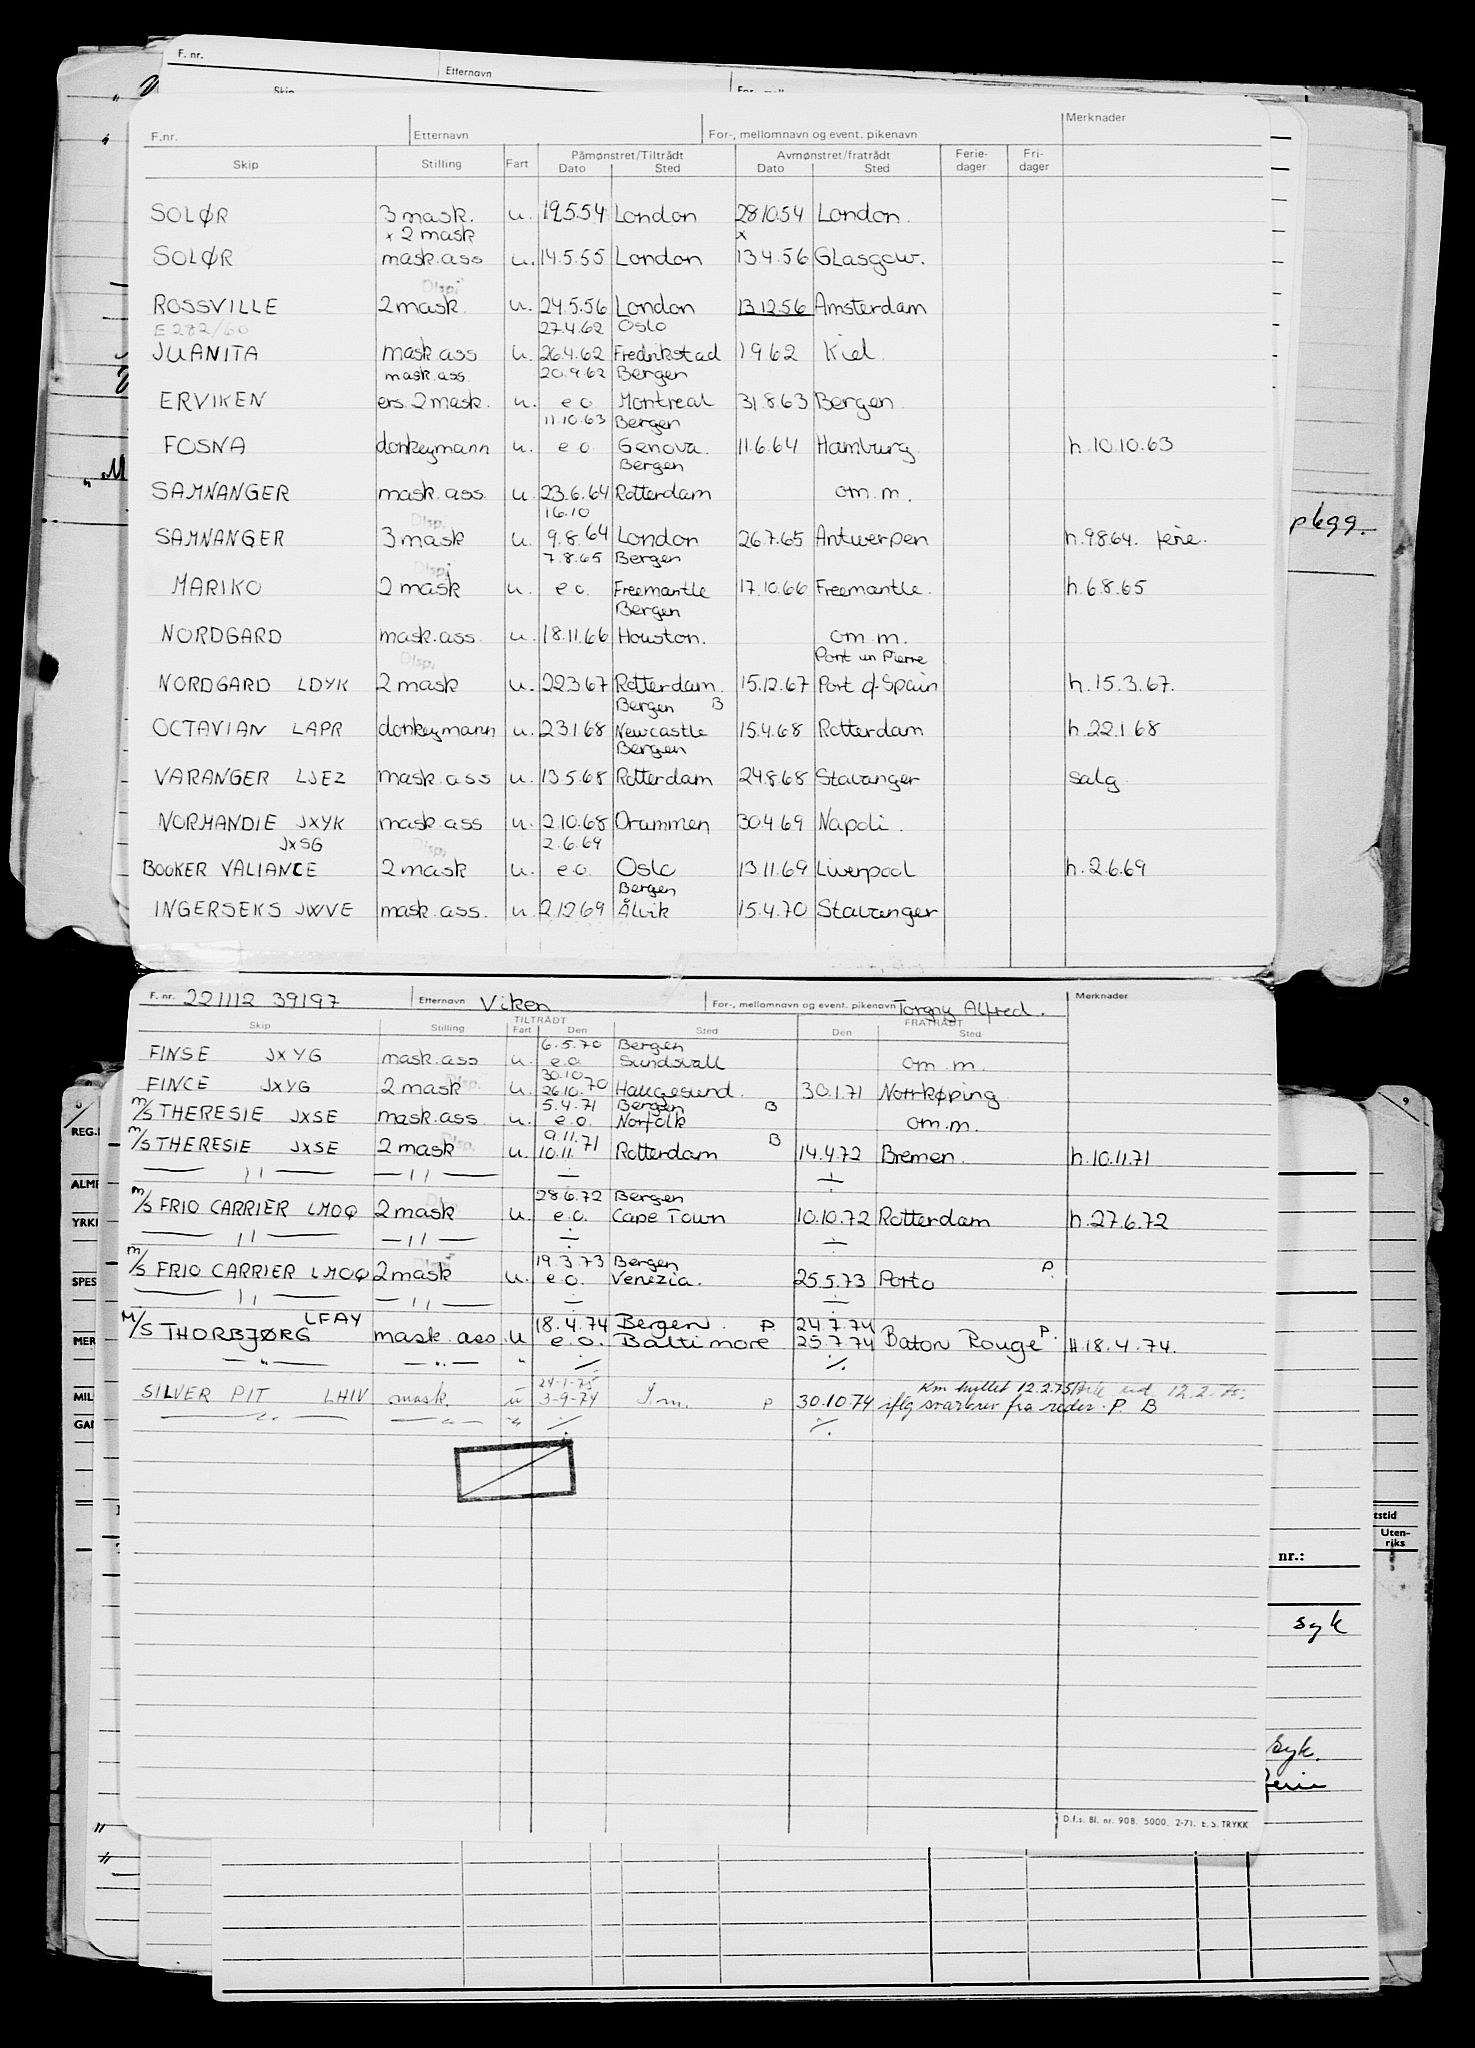 F. nr. Etternavn
Skip
F.nr. Etternavn For-, mellomnavn og event. pikenavn Merknader
Skip Stilling Fart Påmønstret/Tiltrådt Avmønstret/fratrådt Ferie-dager Fri-dager
Dato Sted Dato Sted
SOLØR 3 mask. u. 19.5.54 London 28.10.54 London.
x 2 mask x
SOLØR mask.ass u. 14.5.55 London 13.4.56 Glasgow.
Dispi
ROSSVILLE 2 mask. u. 24.5.56 London 13.12.56 Amsterdam
E 282/60 27.4.62 Oslo
JUANITA mask ass u. 26.4.62 Fredrikstad 1.9.62 Kiel.
mask.ass. 20.9.62 Bergen
ERVIKEN ers. 2 mask. u. e.o. Montreal 31.8.63 Bergen.
11.10.63 Bergen
FOSNA donkeymann u. e.o. Genova. 11.6.64 Hamburg h. 10.10.63
Bergen
SAMNANGER mask.ass. u. 23.6.64 Rotterdam om.m.
16.10
Disp.
SAMNANGER 3 mask u. 9.8.64 London 26.7.65 Antwerpen h. 9.8.64. ferie.
7.8.65 Bergen
Dispi
MARIKO 2 mask u. e.o. Freemantle 17.10.66 Freemantle. h. 6.8.65
Bergen
NORDGARD mask.ass. u. 18.11.66 Houston. om.m.
Dispi Point un Pierre
NORDGARD LDYK 2 mask u. 22.3.67 Rotterdam. 15.12.67 Port of Spain h. 15.3.67.
Bergen B
OCTAVIAN LAPR donkeymann u. 23.1.68 Newcastle 15.4.68 Rotterdam h. 22.1.68
Bergen
VARANGER LJEZ mask.ass u. 13.5.68 Rotterdam 24.8.68 Stavanger salg
NORMANDIE JXYK mask.ass u. 2.10.68 Drammen 30.4.69 Napoli.
JXSG Dispi 2.6.69
BOOKER VALIANCE 2 mask u. e.o. Oslo 13.11.69 Liverpool h. 2.6.69
Bergen
INGERSEKS JWVE mask.ass. u. 2.12.69 Ålvik 15.4.70 Stavanger
F. nr. 221112 39197 Etternavn Viken For-, mellomnavn og event. pikenavn Torgny Alfred. Merknader
Skip Stilling TILTRÅDT FRATRÅDT
Fart Den Sted Den Sted
6.5.70 Bergen
FINSE JXYG mask.ass u. e.o. Sundsvall om.m.
30.10 Disp.
FINCE JXYG 2 mask u. 26.10.70 Haugesund. 30.1.71 Norrkøping.
5.4.71 Bergen B
m/s THERESIE JXSE mask.ass. u. e.o. Norfolk om.m.
9.11.71 B
m/s THERESIE JXSE 2 mask Disp. u. 10.11. Rotterdam 14.4.72 Bremen. h. 10.11.71
— 11 — — 11 — ÷ ÷
28.6.72 Bergen
m/s FRIO CARRIER LMOQ 2 mask u. e.o. Cape Town 10.10.72 Rotterdam h. 27.6.72
— 11 — — 11 — ÷ ÷
19.3.73 Bergen
m/s FRIO CARRIER LMOQ 2 mask u. e.o. Venezia. 25.5.73 Porto P.
— 11 — — 11 — ÷ ÷
LFAY 18.4.74 Bergen. P 24.7.74
M/S THORBJØRG mask.ass. u e.o. Baltimore 25.7.74 Baton Rouge P. H. 18.4.74.
— " — — " — " ./. ./.
24-1-75 Km hullet 12.2.75
SILVER PIT LHIV mask u 3-9-74 P 30.10.74 iflg svarbrev fra reder. P. B
— " — — " — " ./. ./.
D.f.s. Bl. nr. 908. 5000. 2-71. E.S. TRYKK
REG.
ALME
YRK
SPES
MER
MIL
GAR
pbgg.
9
tstid
Uten-riks
nr.:
syk
syk.
ferie